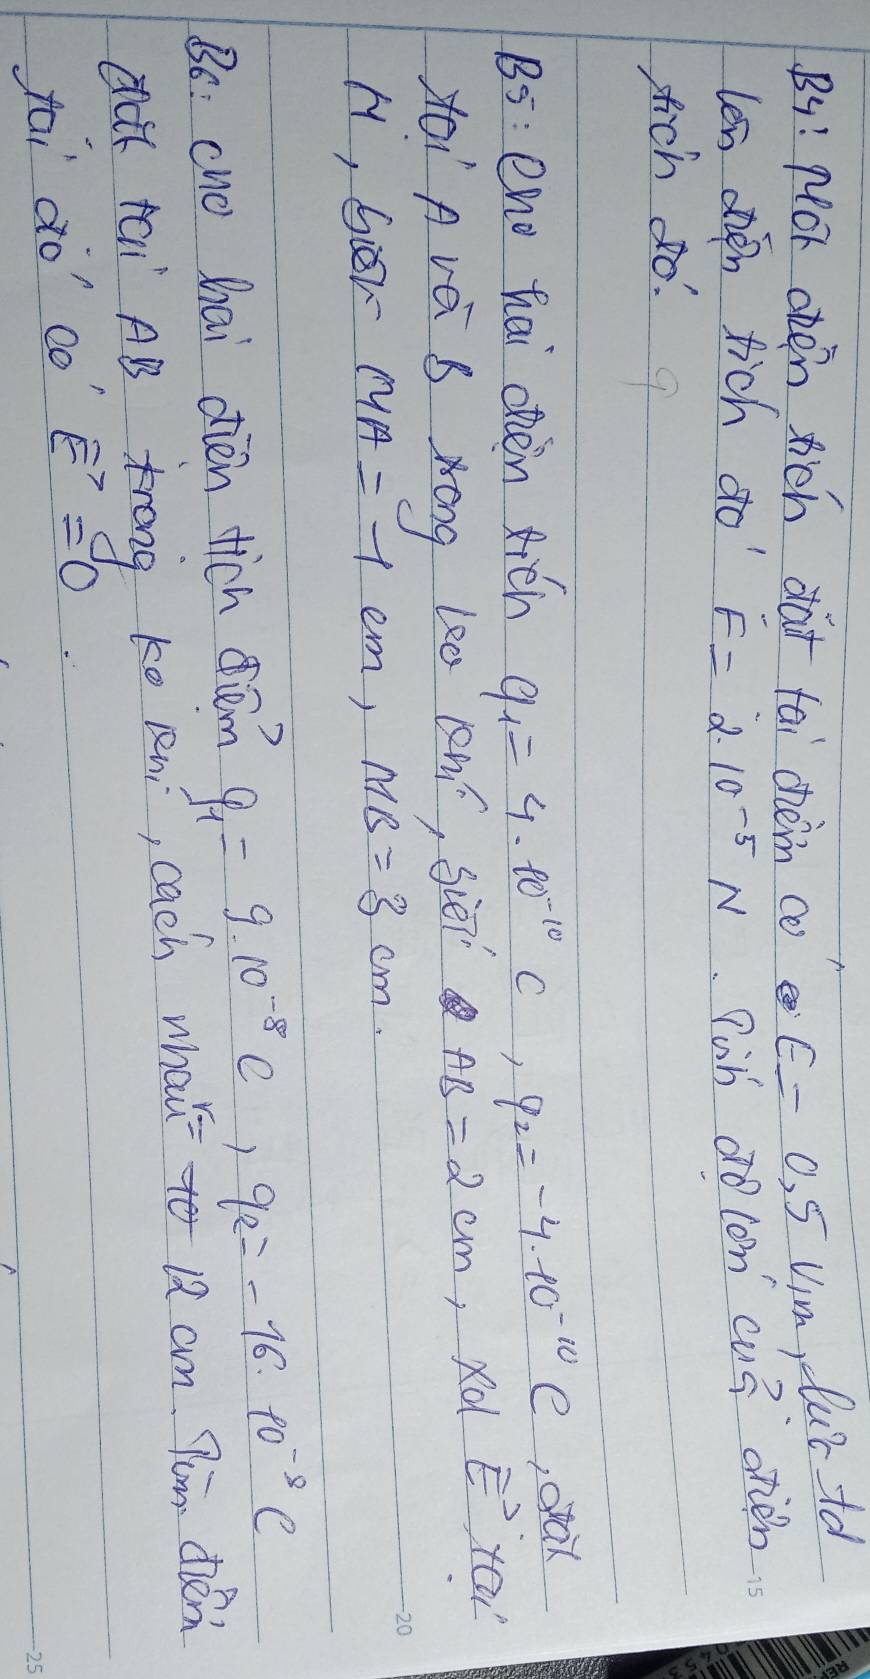 B4: Một điện tích đặt tại điểm có E = 0,5 V/m, lực td
lên điện tích đó F = 2.10⁻⁵ N. Tính độ lớn của điện
tích đó.
B5: Cho hai điện tích q₁ = 4.10⁻¹⁰ C, q₂ = -4.10⁻¹⁰ C, đặt
tại A và B trong ko khí, biết AB = 2 cm, Xđ E⃗ tại
M, biết MA = 1 cm, MB = 3 cm.
B6: Cho hai điện tích điểm q₁ = 9.10⁻⁸ C, q₂ = -16.10⁻⁸ C
đặt tại AB trong ko khí, cách nhau r = 12 cm. Tìm điểm
tại đó có E⃗ = 0.
15
20
25